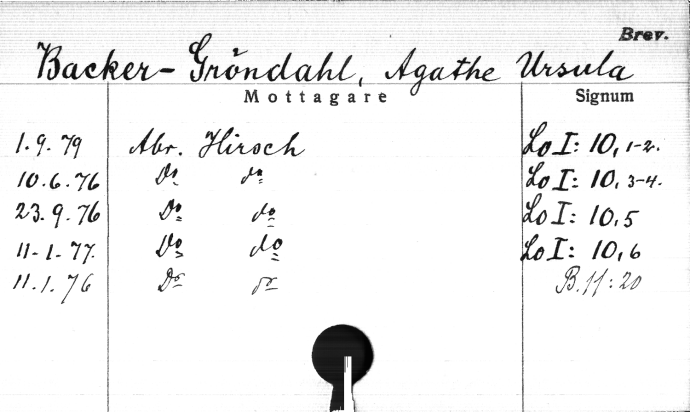 Brev.
Backer-Gröndahl, Agathe Ursula
Mottagare Signum
1.9.79 Abr. Hirsch Lo I: 10, 1-2.
10.6.76 Do do Lo I: 10, 3-4.
23.9.76 Do do Lo I: 10,5
11-1.77. Do do Lo I: 10,6
11.1.76 Do do B.11:20